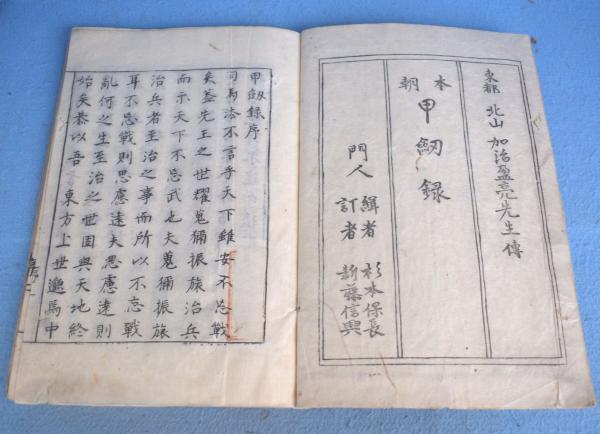 東都 北山 加治盈亮先生傳
本朝
甲劒録
門人 緝者 杉本保長
訂者 新藤信興
甲劒録序
司馬法不言乎天下雖安不忘戰
矣蓋先王之世耀蒐獮振旅治兵
而示天下不忘武也夫蒐獮振旅
治兵者至治之事而所以不忘戰
耳不忘戰則思慮遠夫思慮遠則
亂何之生至治之世固與天地終
始矣恭以吾 東方上世邈焉中